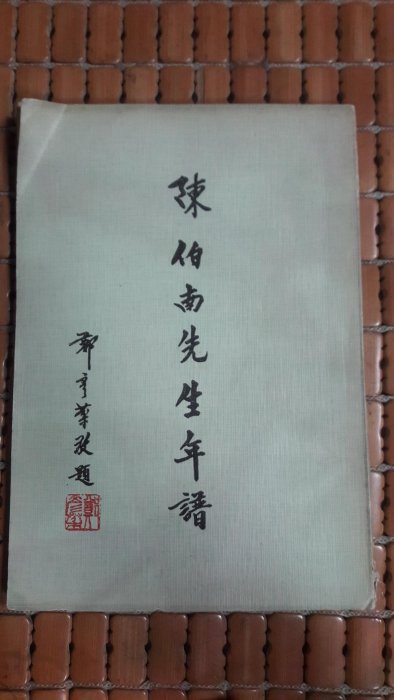 陳伯南先生年譜
鄭亨華敬題